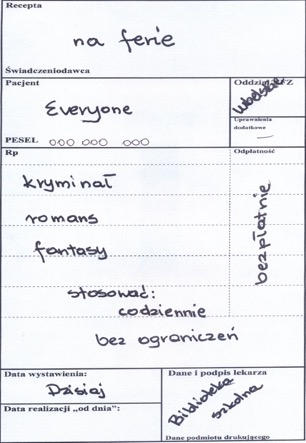 Recepta
na ferie
Świadczeniodawca
Pacjent
Everyone
PESEL 000 000 000
Uprawnienia
dodatkowe
—
Rp
Odpłatność
kryminał
romans
fantasy
bezpłatnie
stosować:
codziennie
bez ograniczeń
Data wystawienia:
Dzisiaj
Data realizacji „od dnia”:
Dane i podpis lekarza
Biblioteka
szkolna
Dane podmiotu drukującego